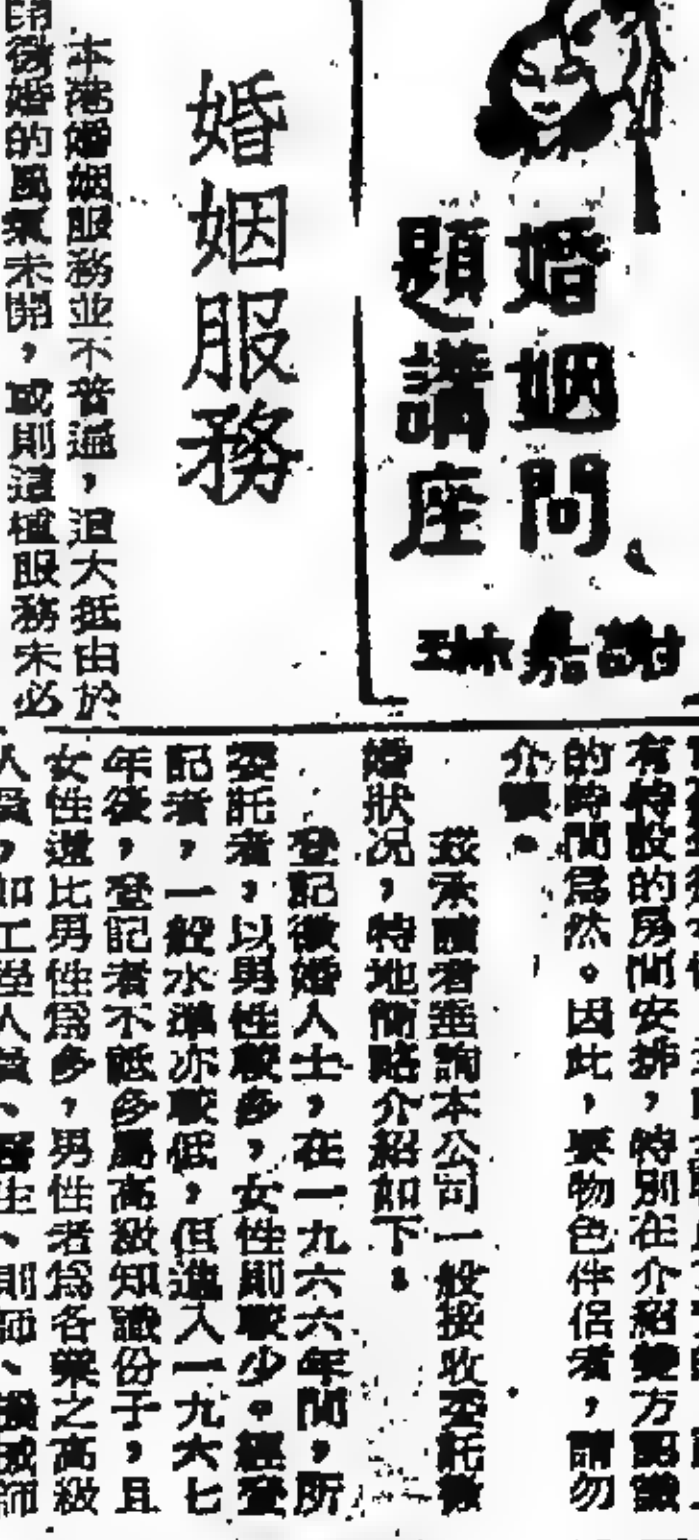 婚姻問
題講座
謝嘉琳
婚姻服務
本港婚姻服務並不普遍，這大抵由於
徵婚的風氣未開，或則這種服務未必
有特設的房間安排，特別在介紹雙方認識
的時間爲然。因此，要物色伴侶者，請勿
介懷。
茲承讀者垂詢本公司一般接收委託徵
婚狀况，特地簡略介紹如下。
登記徵婚人士，在一九六六年間，所
委託者，以男性較多，女性則較少。經登
記者，一般水準亦較低，但進入一九六七
年後，登記者不祗多屬高級知識份子，且
女性還比男性爲多，男性者爲各業之高級
人員，如工程人員、醫生、則師、機械師